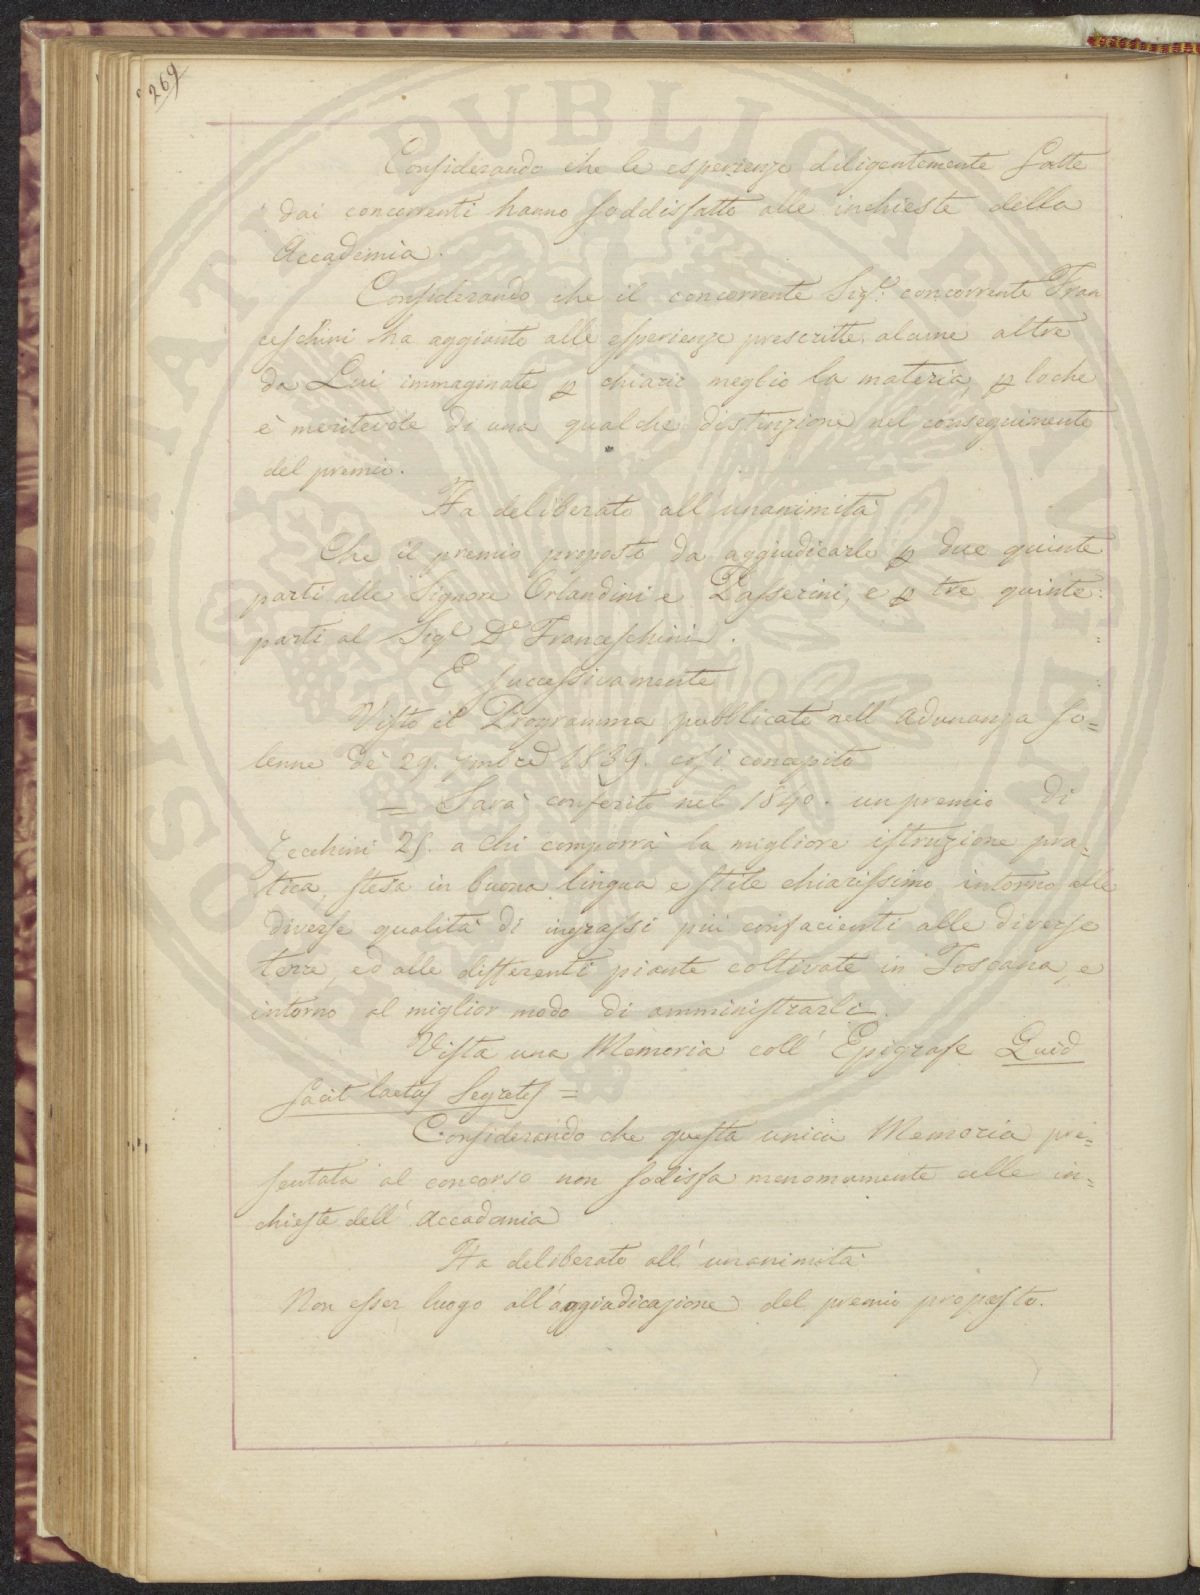 269
Considerando che le esperienze diligentemente fatte
dai concorrenti hanno soddisfatto alle inchieste della
Accademia.
Considerando che il concorrente Sigr. concorrente Fran
ceschini ha aggiunto alle esperienze prescritte, alcune altre
da Lui immaginate p chiarir meglio la materia, p loche
è meritevole di una qualche distinzione nel conseguimento
del premio.
Ha deliberato all'unanimità
Che il premio proposto da aggiudicarsi p due quinte
parti alle Signore Orlandini e Passerini, e p tre quinte
parti al Sigr. Dr. Franceschini.
E successivamente
Visto il Programma pubblicato nell'Adunanza so=
lenne de 29. 1839. così concepito
= Sarà conferito nel 1840. un premio di
Zecchini 25. a chi comporrà la migliore istruzione pra=
tica, stesa in buona lingua e stile chiarissimo intorno alle
diverse qualità di ingrassi più confacienti alle diverse
terre, ed alle differenti piante coltivate in Toscana, e
intorno al miglior modo di amministrarli.
Vista una Memoria coll'Epigrafe Quid
facit laetas Segetes =
Considerando che questa unica Memoria pre=
sentata al concorso non sodisfa menomamente alle in=
chieste dell'Accademia
Ha deliberato all'unanimità
Non esser luogo all'aggiudicazione del premio proposto.
PROSPERITATI PUBLICAE AUGENDAE